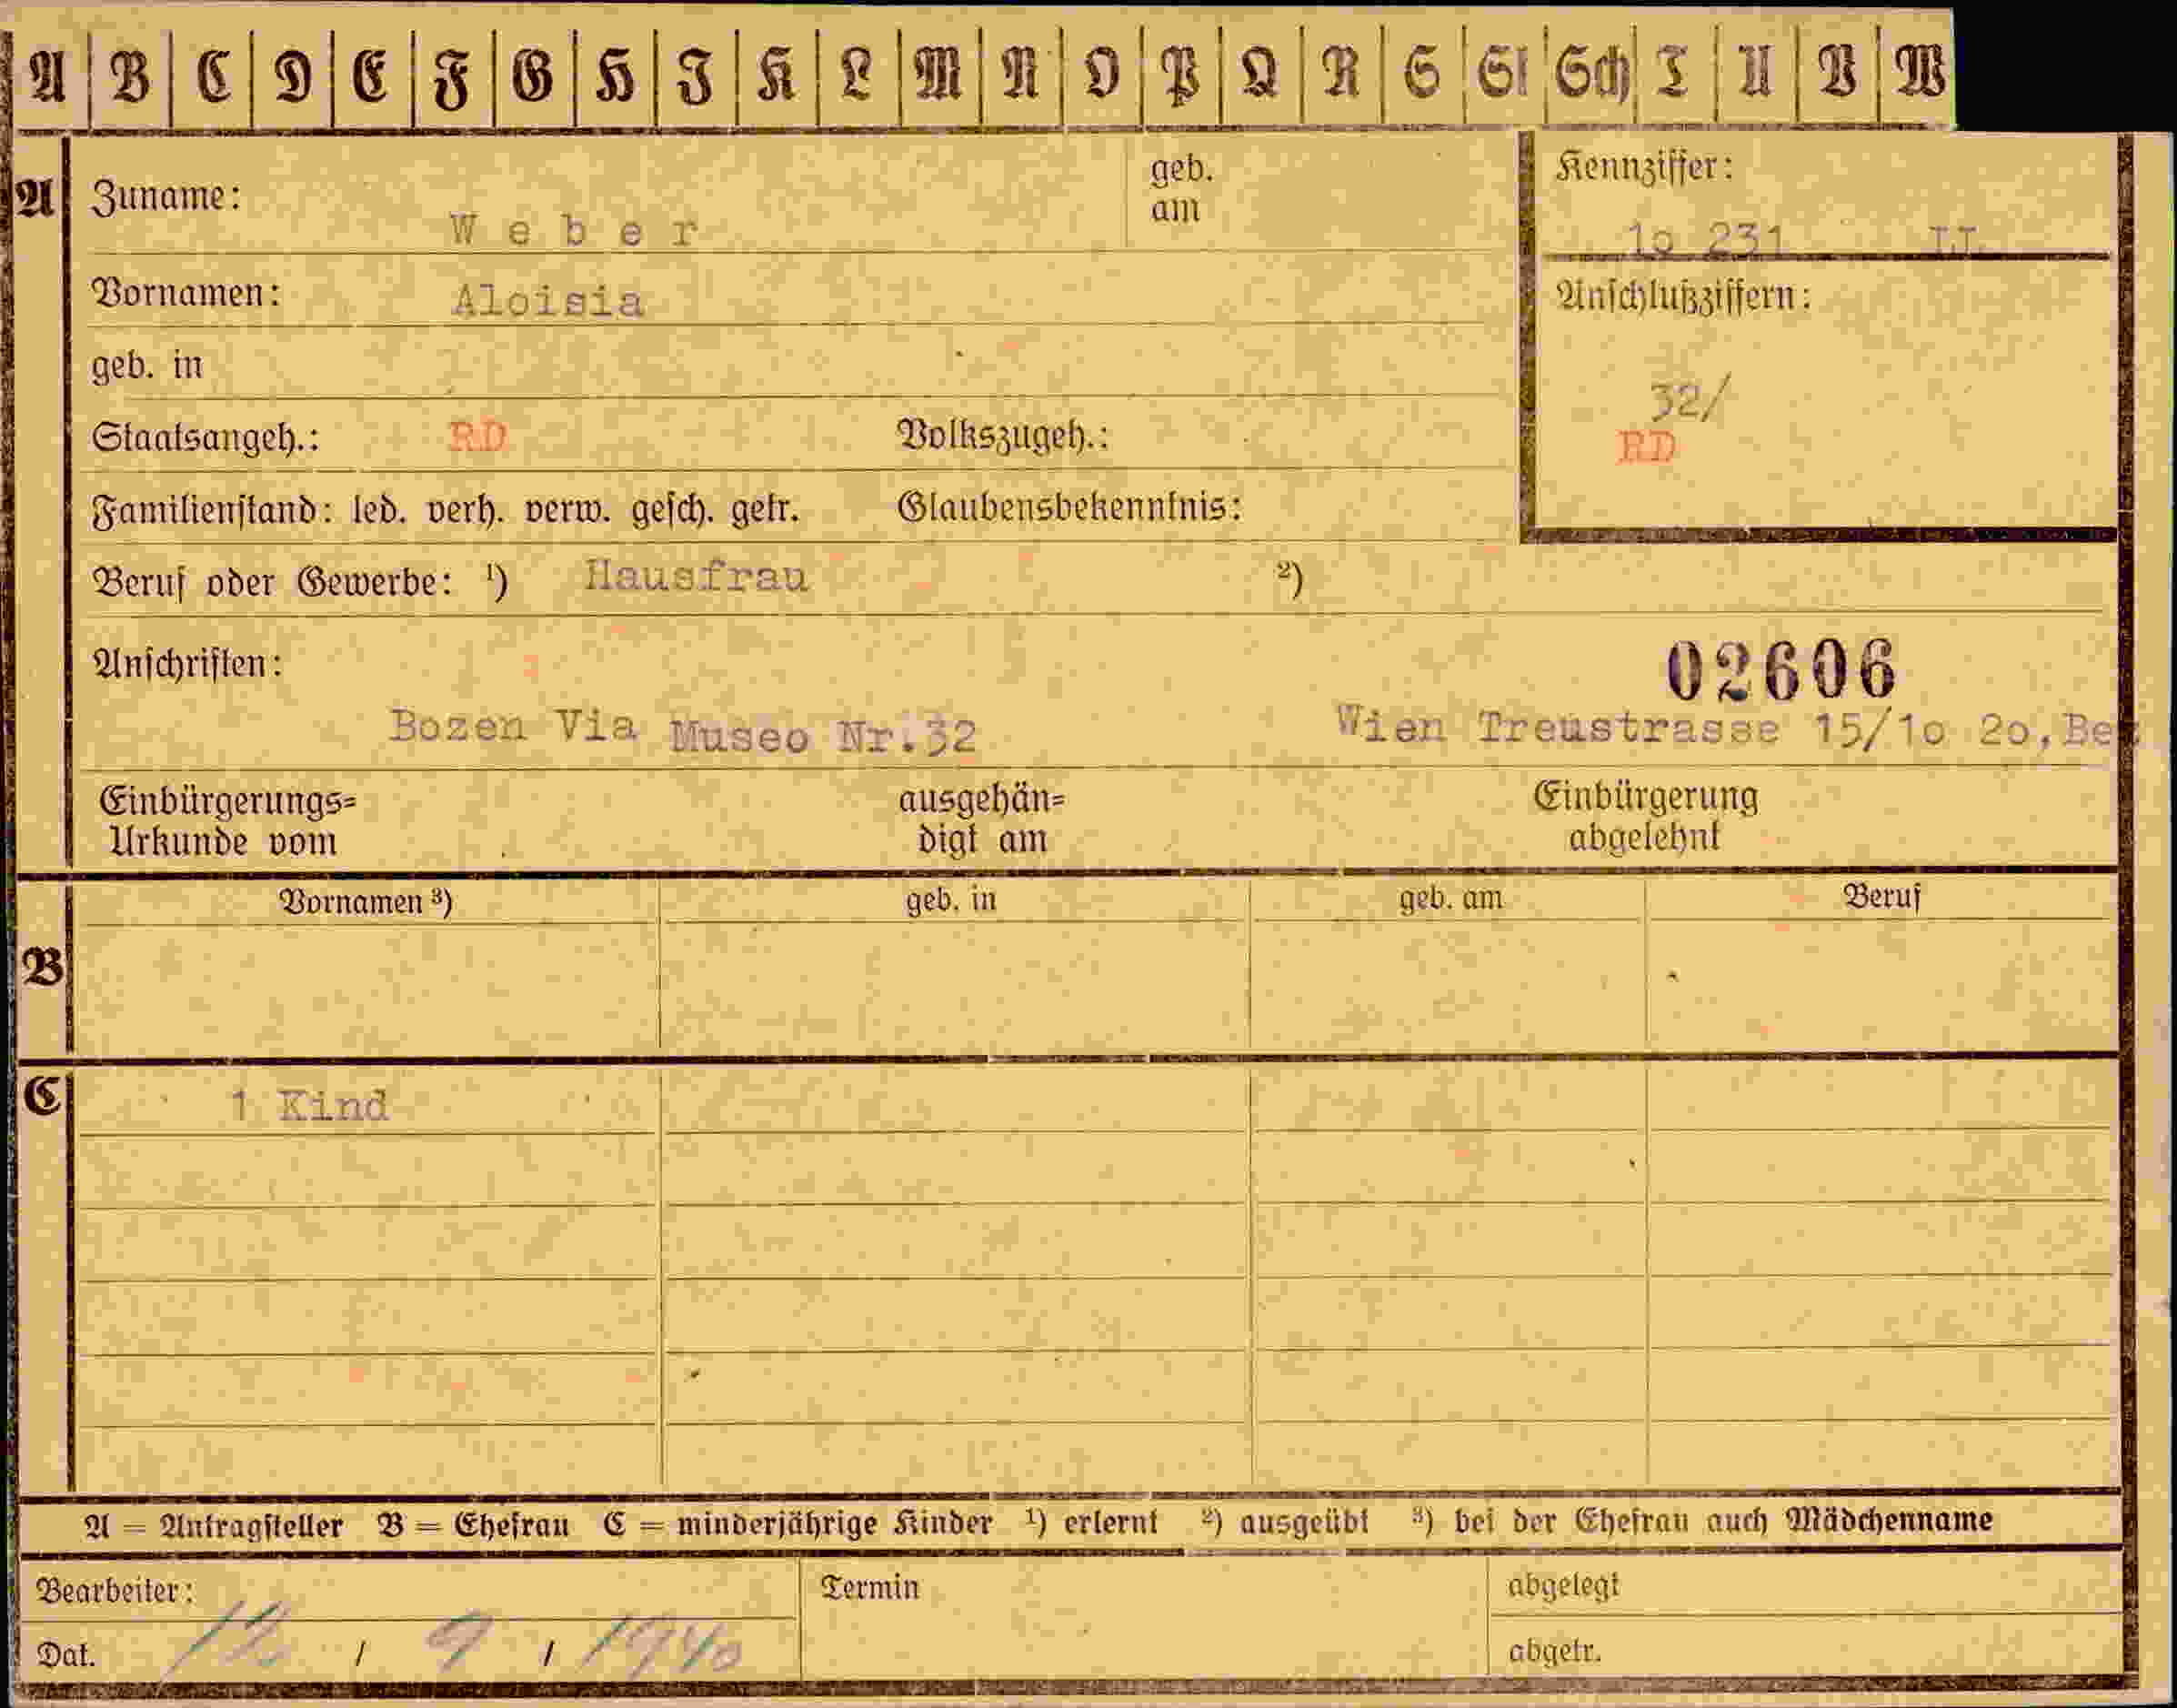 A B C D E F G H J K L M N O P Q R S St Sch T U V W
A Zuname: Weber geb. am
Kennziffer: 1o 231 II
Vornamen: Aloisia
Anschlußziffern:
geb. in
32/
Staatsangeh.: RD Volkszugeh.:
RD
Familienstand: led. verh. verw. gesch. getr. Glaubensbekenntnis:
Beruf oder Gewerbe: ¹) Hausfrau ²)
Anschriften: 02606
Bozen Via Museo Nr.32 Wien Treustrasse 15/1o 2o,Bez
Einbürgerungs= ausgehän= Einbürgerung
Urkunde vom digt am abgelehnt
Vornamen ³) geb. in geb. am Beruf
B
C 1 Kind
A = Antragsteller B = Ehefrau C = minderjährige Kinder ¹) erlernt ²) ausgeübt ³) bei der Ehefrau auch Mädchenname
Bearbeiter: Termin abgelegt
Dat. / 9 / 1940 abgetr.